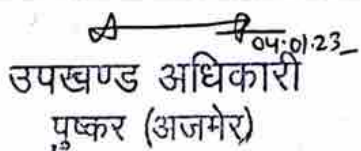 04.01.23
उपखण्ड अधिकारी
पुष्कर (अजमेर)